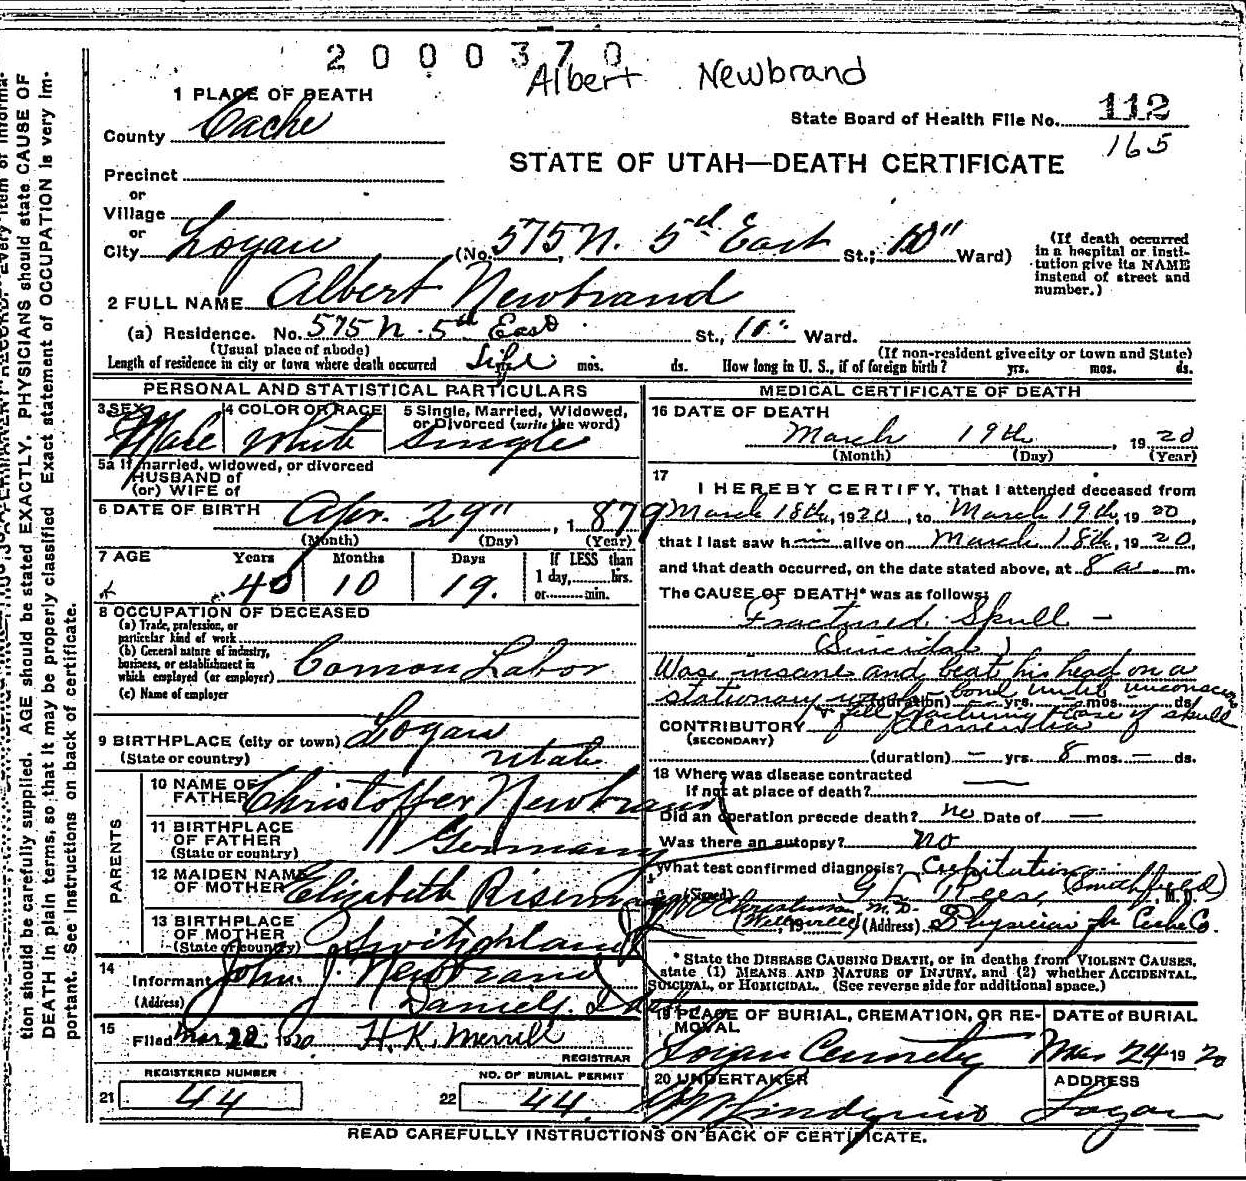 2000370
Albert Newbrand
1 PLACE OF DEATH
County Cache
State Board of Health File No. 112
165
STATE OF UTAH—DEATH CERTIFICATE
Precinct
or
Village
or
City Logan (No. 575 N. 5th East St.; 10" Ward)
(If death occurred in a hospital or institution give its NAME instead of street and number.)
2 FULL NAME Albert Newbrand
(a) Residence. No. 575 N. 5th East St., 10" Ward.
(Usual place of abode) (If non-resident give city or town and State)
Length of residence in city or town where death occurred Life mos. ds. How long in U. S., if of foreign birth? yrs. mos. ds.
PERSONAL AND STATISTICAL PARTICULARS
3 SEX Male
4 COLOR OR RACE White
5 Single, Married, Widowed, or Divorced (write the word) Single
5a If married, widowed, or divorced
HUSBAND of
(or) WIFE of
6 DATE OF BIRTH Apr. 29" , 1879
(Month) (Day) (Year)
7 AGE Years Months Days If LESS than
40 10 19. 1 day,.....hrs.
or.....min.
8 OCCUPATION OF DECEASED
(a) Trade, profession, or
particular kind of work
(b) General nature of industry,
business, or establishment in
which employed (or employer) Comon Labor
(c) Name of employer
9 BIRTHPLACE (city or town) Logan
(State or country) Utah
PARENTS
10 NAME OF FATHER Christoffer Newbrand
11 BIRTHPLACE OF FATHER (State or country) Germany
12 MAIDEN NAME OF MOTHER Elizabeth
13 BIRTHPLACE OF MOTHER (State or country) Switzerland
14 Informant John J. Newbrand
(Address) Daniels, Idaho
15 Filed Mar 22, 1920. H. K. Merrill
REGISTRAR
REGISTERED NUMBER NO. OF BURIAL PERMIT
21 44 22 44
MEDICAL CERTIFICATE OF DEATH
16 DATE OF DEATH
March 19th , 1920
(Month) (Day) (Year)
17
I HEREBY CERTIFY, That I attended deceased from
March 18th, 1920, to March 19th, 1920,
that I last saw him alive on March 18th, 1920,
and that death occurred, on the date stated above, at 8 a. m.
The CAUSE OF DEATH* was as follows:
Fractured Skull —
(Suicidal)
Was insane and beat his head on a
stationary wash bowl until unconscious
& fell fracturing base of skull
(duration) — yrs. — mos. — ds.
CONTRIBUTORY Dementia
(SECONDARY)
(duration) — yrs. 8 mos. — ds.
18 Where was disease contracted
If not at place of death? —
Did an operation precede death? no Date of —
Was there an autopsy? no
What test confirmed diagnosis? Crepitation
(Signed) (Smithfield) M. D.
Christiansen M. D.
(Wellsville) , 19 (Address) Physician for Cache Co.
* State the DISEASE CAUSING DEATH, or in deaths from VIOLENT CAUSES,
state (1) MEANS AND NATURE OF INJURY, and (2) whether ACCIDENTAL,
SUICIDAL, or HOMICIDAL. (See reverse side for additional space.)
19 PLACE OF BURIAL, CREMATION, OR REMOVAL DATE OF BURIAL
Logan Cemetery Mar 24 1920
20 UNDERTAKER ADDRESS
Lindquist Logan
READ CAREFULLY INSTRUCTIONS ON BACK OF CERTIFICATE.
tion should be carefully supplied. AGE should be stated EXACTLY. PHYSICIANS should state CAUSE OF
DEATH in plain terms, so that it may be properly classified. Exact statement of OCCUPATION is very im-
portant. See instructions on back of certificate.